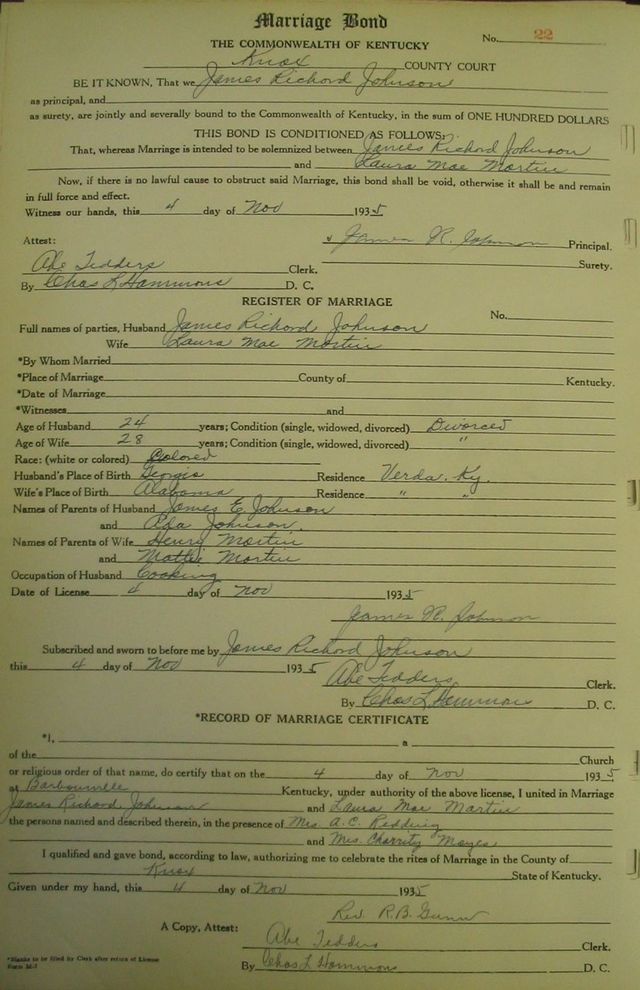 Marriage Bond
THE COMMONWEALTH OF KENTUCKY No. 22
Knox COUNTY COURT
BE IT KNOWN, That we James Richard Johnson
as principal, and
as surety, are jointly and severally bound to the Commonwealth of Kentucky, in the sum of ONE HUNDRED DOLLARS
THIS BOND IS CONDITIONED AS FOLLOWS:
That, whereas Marriage is intended to be solemnized between James Richard Johnson
and Laura Mae Martin
Now, if there is no lawful cause to obstruct said Marriage, this bond shall be void, otherwise it shall be and remain
in full force and effect.
Witness our hands, this 4 day of Nov 1935
Attest: James R. Johnson Principal.
Abe Tedders Clerk. Surety.
By Chas L Hammons D. C.
REGISTER OF MARRIAGE
No.
Full names of parties, Husband James Richard Johnson
Wife Laura Mae Martin
*By Whom Married
*Place of Marriage County of Kentucky.
*Date of Marriage
*Witnesses and
Age of Husband 24 years; Condition (single, widowed, divorced) Divorced
Age of Wife 28 years; Condition (single, widowed, divorced) "
Race: (white or colored) Colored
Husband's Place of Birth Georgia Residence Verda, Ky.
Wife's Place of Birth Alabama Residence " "
Names of Parents of Husband James E Johnson
and Ada Johnson.
Names of Parents of Wife Henry Martin
and Mattie Martin
Occupation of Husband Cooking
Date of License 4 day of Nov 1935
James R. Johnson
Subscribed and sworn to before me by James Richard Johnson
this 4 day of Nov 1935
Abe Tedders Clerk.
By Chas L Hammons D. C.
*RECORD OF MARRIAGE CERTIFICATE
*I, a
of the Church
or religious order of that name, do certify that on the 4 day of Nov 1935
at Barbourville Kentucky, under authority of the above license, I united in Marriage
James Richard Johnson and Laura Mae Martin
the persons named and described therein, in the presence of Mrs A.C. Redding
and Mrs. Charrity Mayes
I qualified and gave bond, according to law, authorizing me to celebrate the rites of Marriage in the County of
Knox State of Kentucky.
Given under my hand, this 4 day of Nov 1935
Rev. R.B. Gunn
A Copy, Attest: Abe Tedders Clerk.
*Blanks to be filled by Clerk after return of License
By Chas L Hammons D. C.